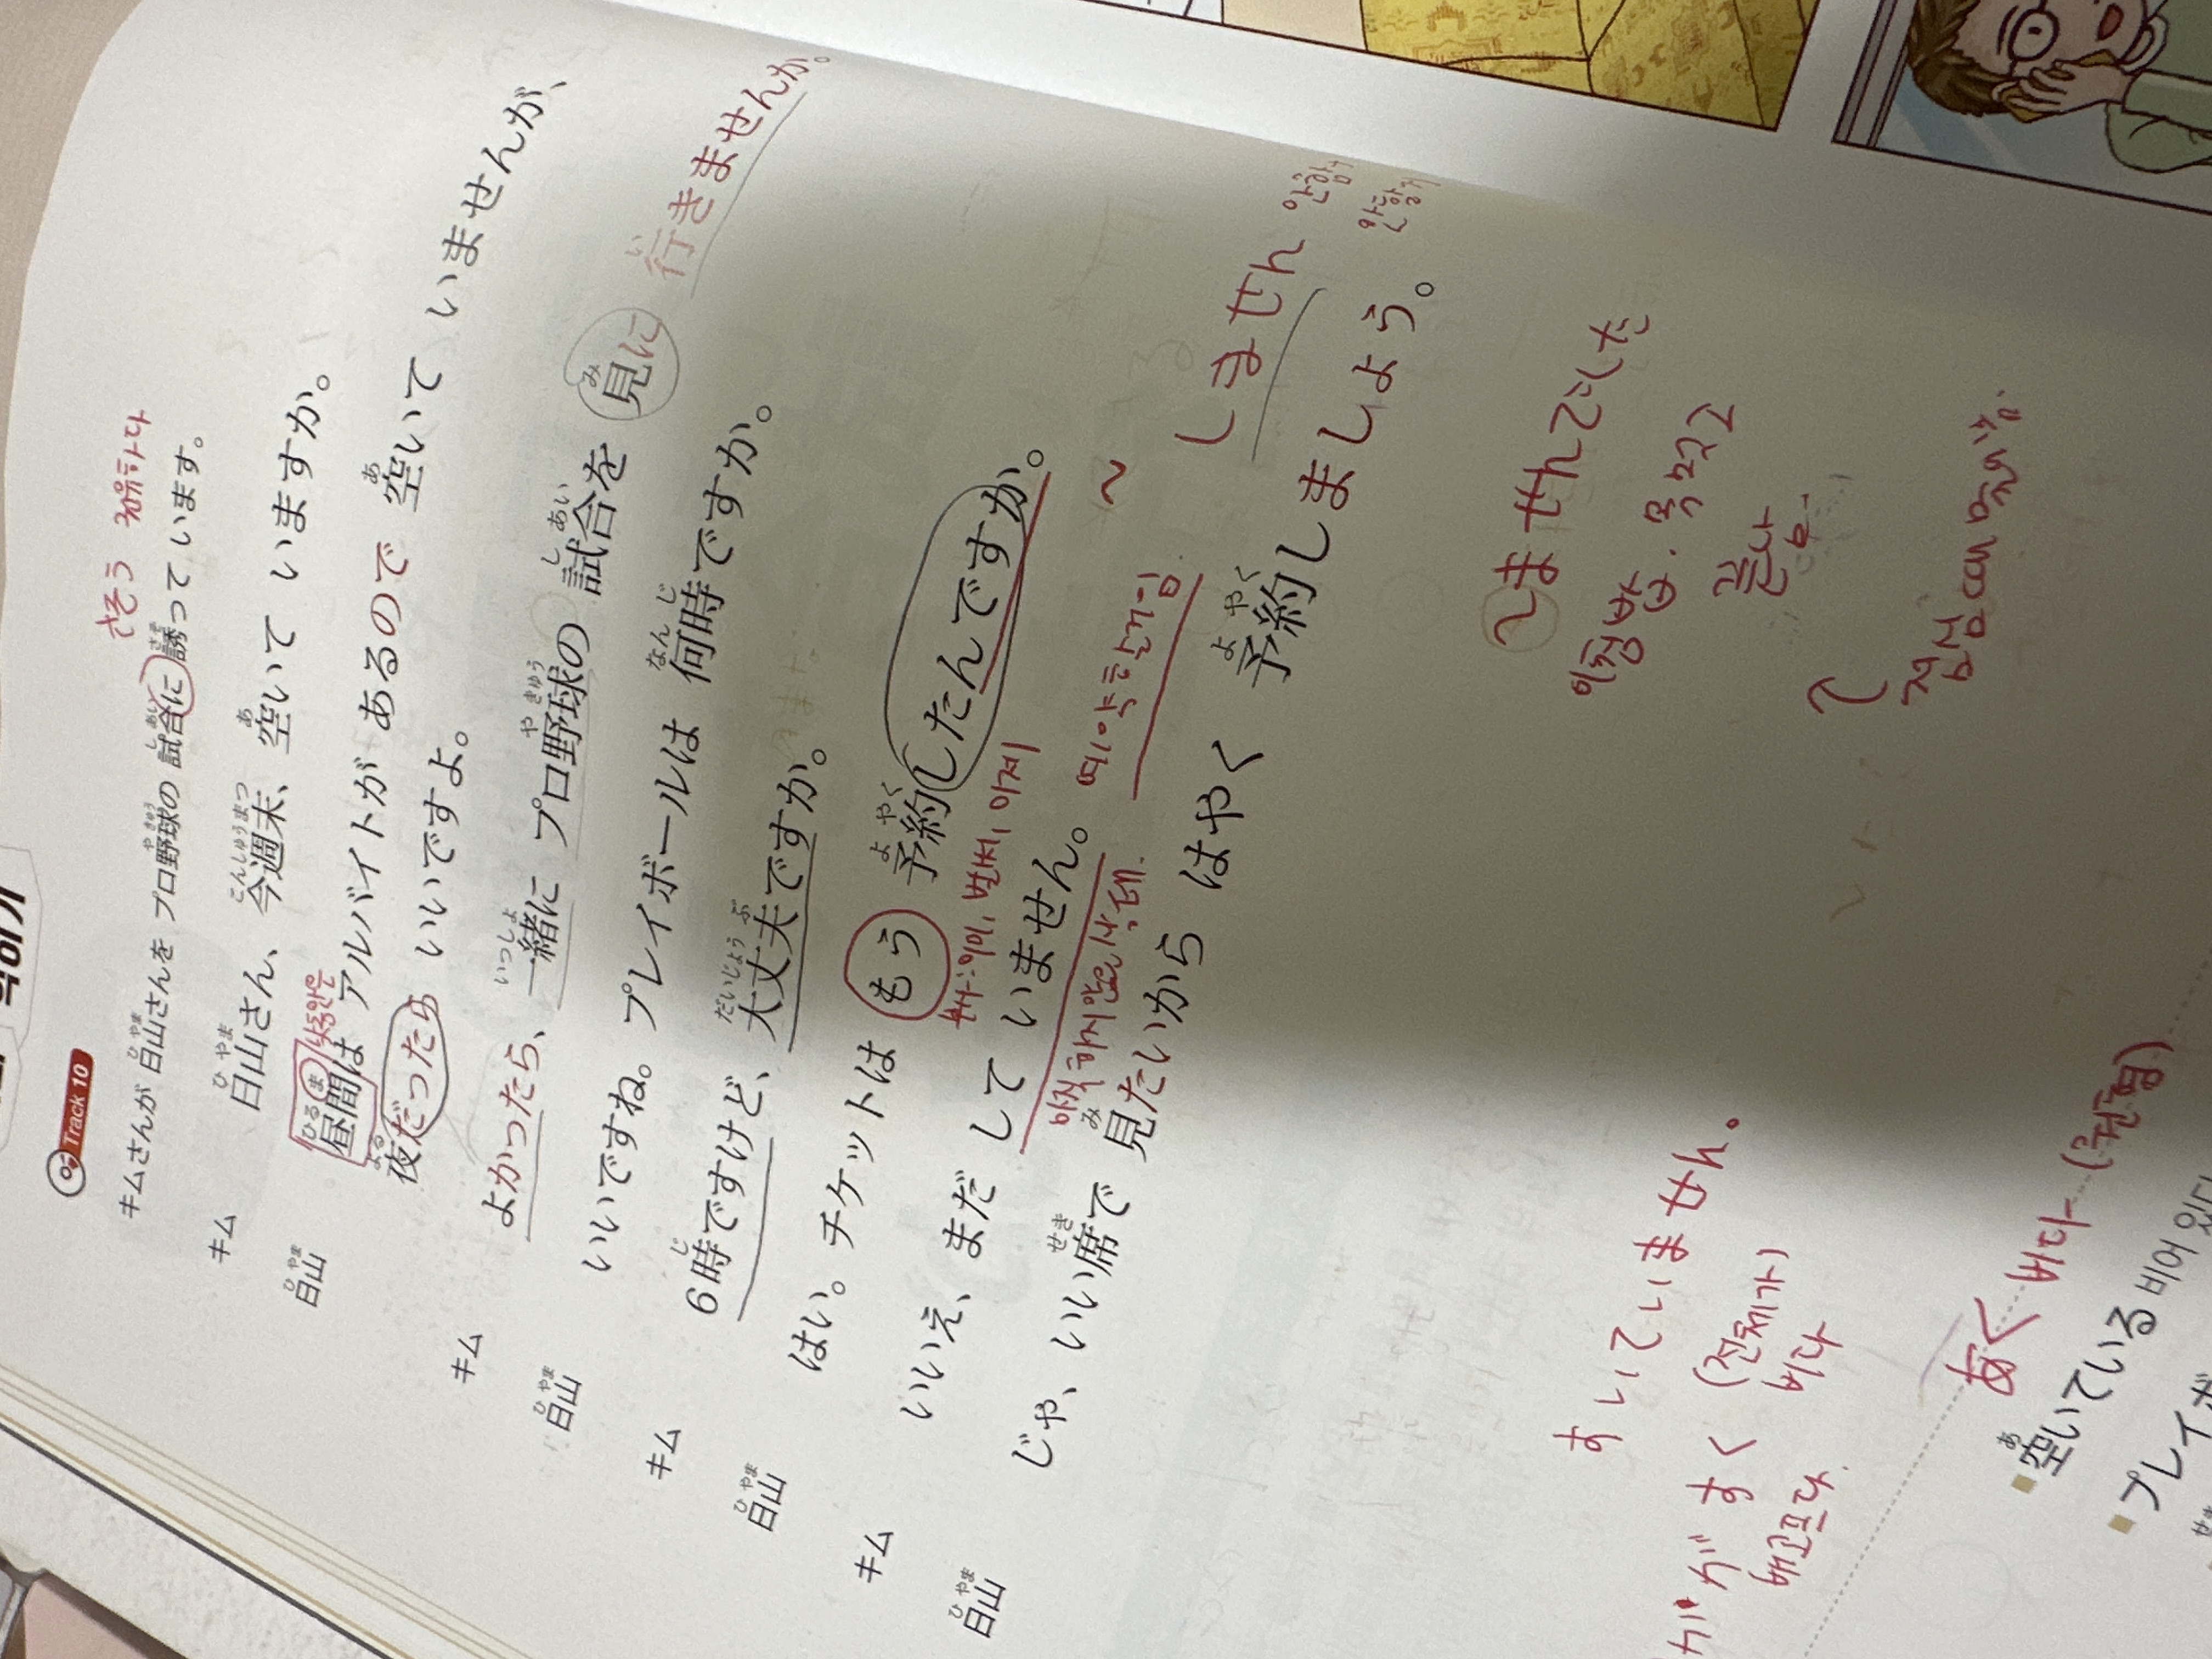 Track 10
さそう 권유하다
キムさんが 日山さんを プロ野球の 試合に 誘って います。
キム 日山さん、今週末、空いて いますか。
日山 昼間は アルバイトが あるので 空いて いませんが、
낮동안은
夜だったら いいですよ。
キム よかったら、一緒に プロ野球の 試合を 見に 行きませんか。
日山 いいですね。プレイボールは 何時ですか。
キム 6時ですけど、大丈夫ですか。
日山 はい。チケットは もう 予約したんですか。
이미, 벌써, 이제
キム いいえ、まだ して いません。 예약 한거임. ~ しません 안함
아직 하지 않은 상태.
日山 じゃ、いい席で 見たいから はやく 予約しましょう。
しませんでした
아침밥. 먹었고
끝나
점심
すいていません。
すく (전체가) 비다
배고프다.
あく 비다
空いている 비어 있다